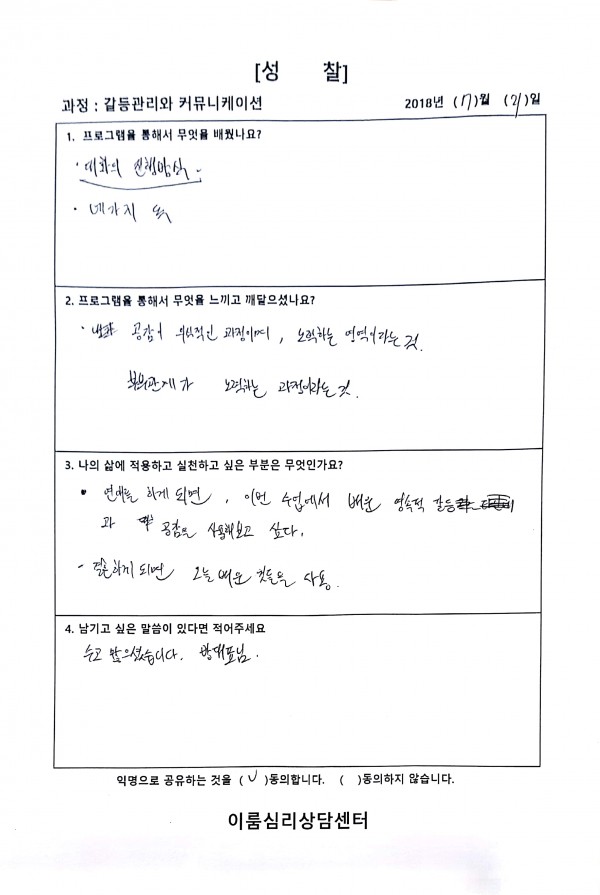 [성 찰]
과정 : 갈등관리와 커뮤니케이션
2018년 (7)월 (21)일
1. 프로그램을 통해서 무엇을 배웠나요?
· 대화의 진행방식.
· 네가지 욕
2. 프로그램을 통해서 무엇을 느끼고 깨달으셨나요?
· 공감이 의식적인 과정이며, 노력하는 영역이라는 것.
부부관계가 노력하는 과정이라는 것.
3. 나의 삶에 적용하고 실천하고 싶은 부분은 무엇인가요?
• 연애를 하게 되면, 이번 수업에서 배운 영속적 갈등
과 공감을 사용해보고 싶다.
- 결혼하게 되면 오늘 배운 것들을 사용.
4. 남기고 싶은 말씀이 있다면 적어주세요
수고 많으셨습니다. 방대표님.
익명으로 공유하는 것을 (V)동의합니다. ( )동의하지 않습니다.
이룸심리상담센터